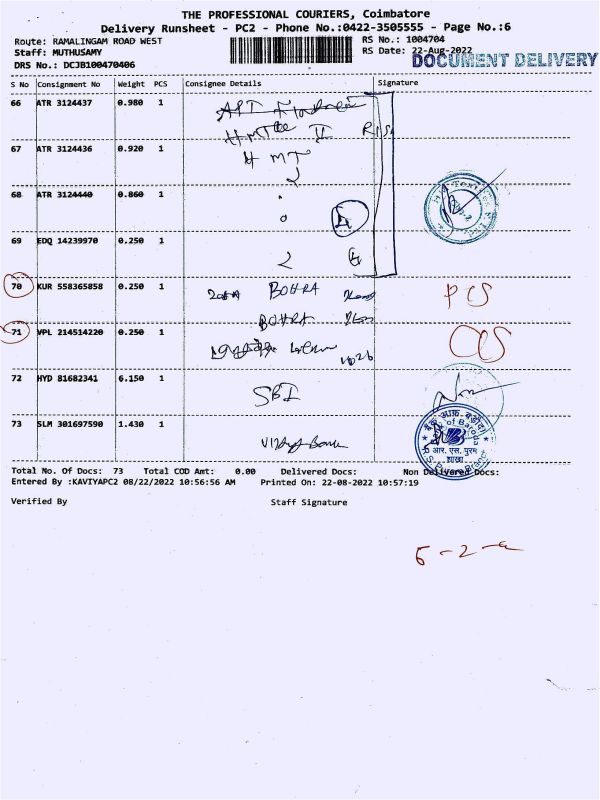 THE PROFESSIONAL COURIERS, Coimbatore
Delivery Runsheet - PC2 - Phone No.:0422-3505555 - Page No.:6
Route: RAMALINGAM ROAD WEST
RS No.: 1004704
Staff: MUTHUSAMY
RS Date: 22-Aug-2022
DOCUMENT DELIVERY
DRS No.: DCJB100470406
S No Consignment No Weight PCS Consignee Details Signature
66 ATR 3124437 0.980 1
II
67 ATR 3124436 0.920 1 H MT
68 ATR 3124440 0.860 1
69 EDQ 14239970 0.250 1
70 KUR 558365858 0.250 1 BOHRA PCS
BOHRA
71 VPL 214514220 0.250 1
72 HYD 81682341 6.150 1 SBI
73 SLM 301697590 1.430 1
बैंक ऑफ़ बड़ौदा
of Baroda
आर. एस. पुरम
शाखा
Total No. Of Docs: 73 Total COD Amt: 0.00 Delivered Docs: Non Delivered Docs:
Entered By :KAVIYAPC2 08/22/2022 10:56:56 AM Printed On: 22-08-2022 10:57:19
Verified By Staff Signature